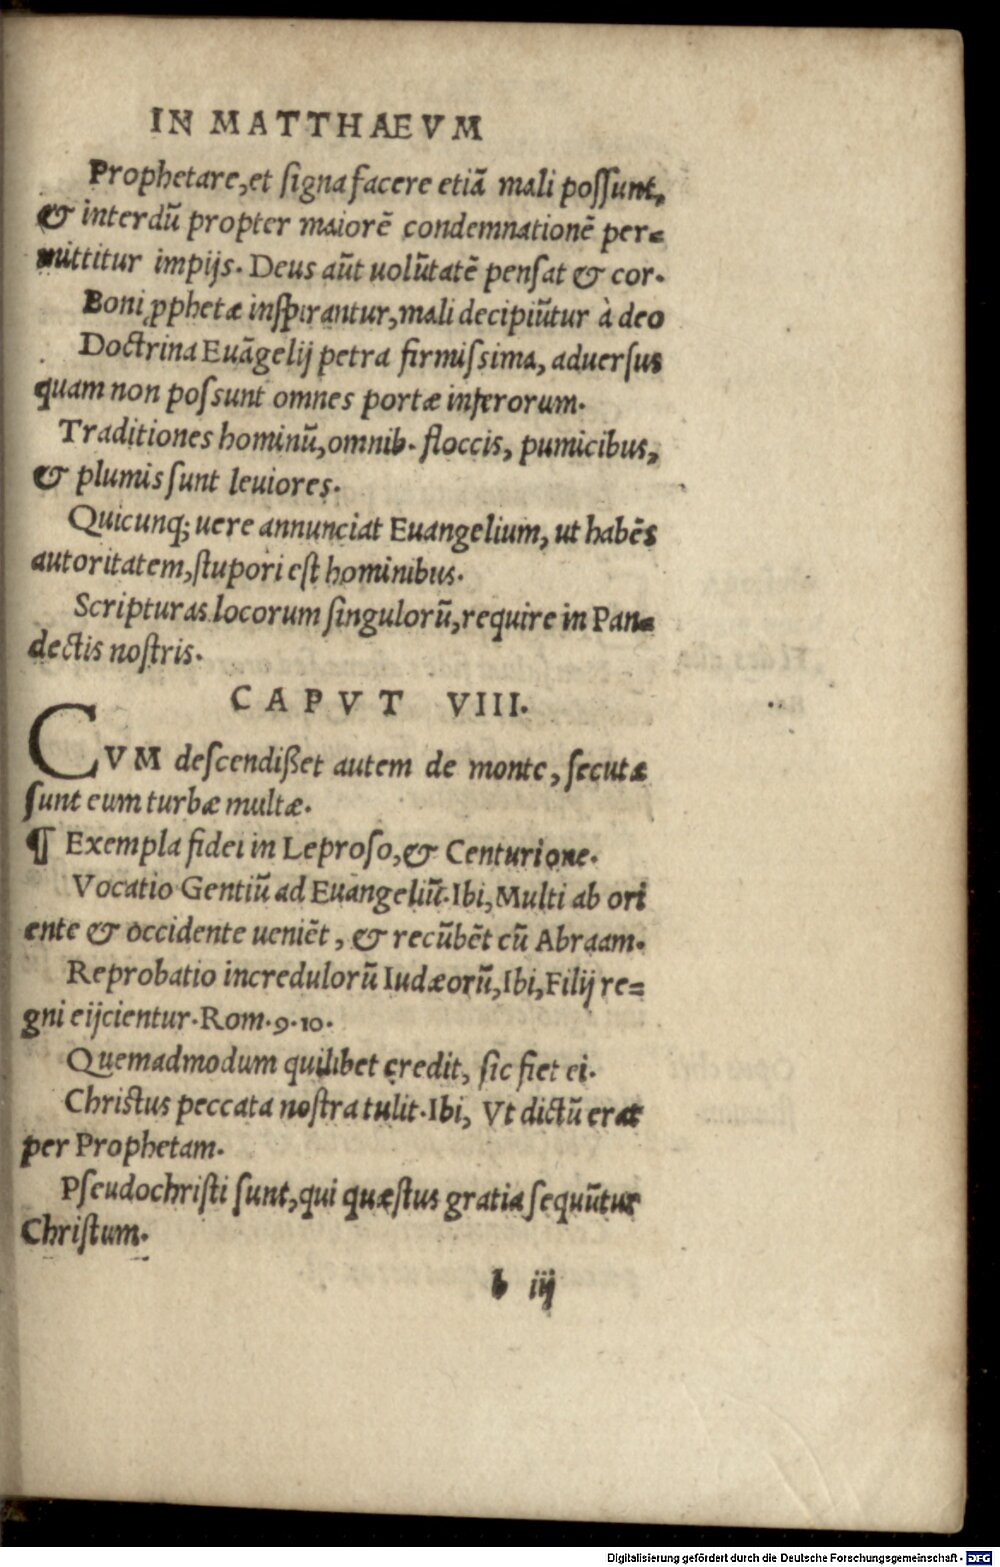 IN MATTHAEVM
Prophetare, et ſigna facere etiã mali poſſunt,
& interdũ propter maiorẽ condemnationẽ per=
mittitur impijs. Deus aũt uolũtatẽ penſat & cor.
Boni ꝓphetæ inſpirantur, mali decipiũtur à deo
Doctrina Euãgelij petra firmiſsima, aduerſus
quam non poſsunt omnes portæ inferorum.
Traditiones hominũ, omnib. floccis, pumicibus,
& plumis ſunt leuiores.
Quicunq; uere annunciat Euangelium, ut habẽs
autoritatem, ſtupori eſt hominibus.
Scripturas locorum ſingulorũ, require in Pan=
dectis noſtris.
CAPVT VIII.
CVM deſcendiſßet autem de monte, ſecutæ
ſunt eum turbæ multæ.
¶ Exempla fidei in Leproſo, & Centurione.
Vocatio Gentiũ ad Euangeliũ. Ibi, Multi ab ori
ente & occidente ueniẽt, & recũbẽt cũ Abraam.
Reprobatio incredulorũ Iudæorũ, Ibi, Filij re=
gni eijcientur. Rom. 9. 10.
Quemadmodum quilibet credit, ſic fiet ei.
Chriſtus peccata noſtra tulit. Ibi, Vt dictũ erat
per Prophetam.
Pſeudochriſti ſunt, qui quæſtus gratia ſequũtur
Chriſtum.
b iij
Digitalisierung gefördert durch die Deutsche Forschungsgemeinschaft - DFG